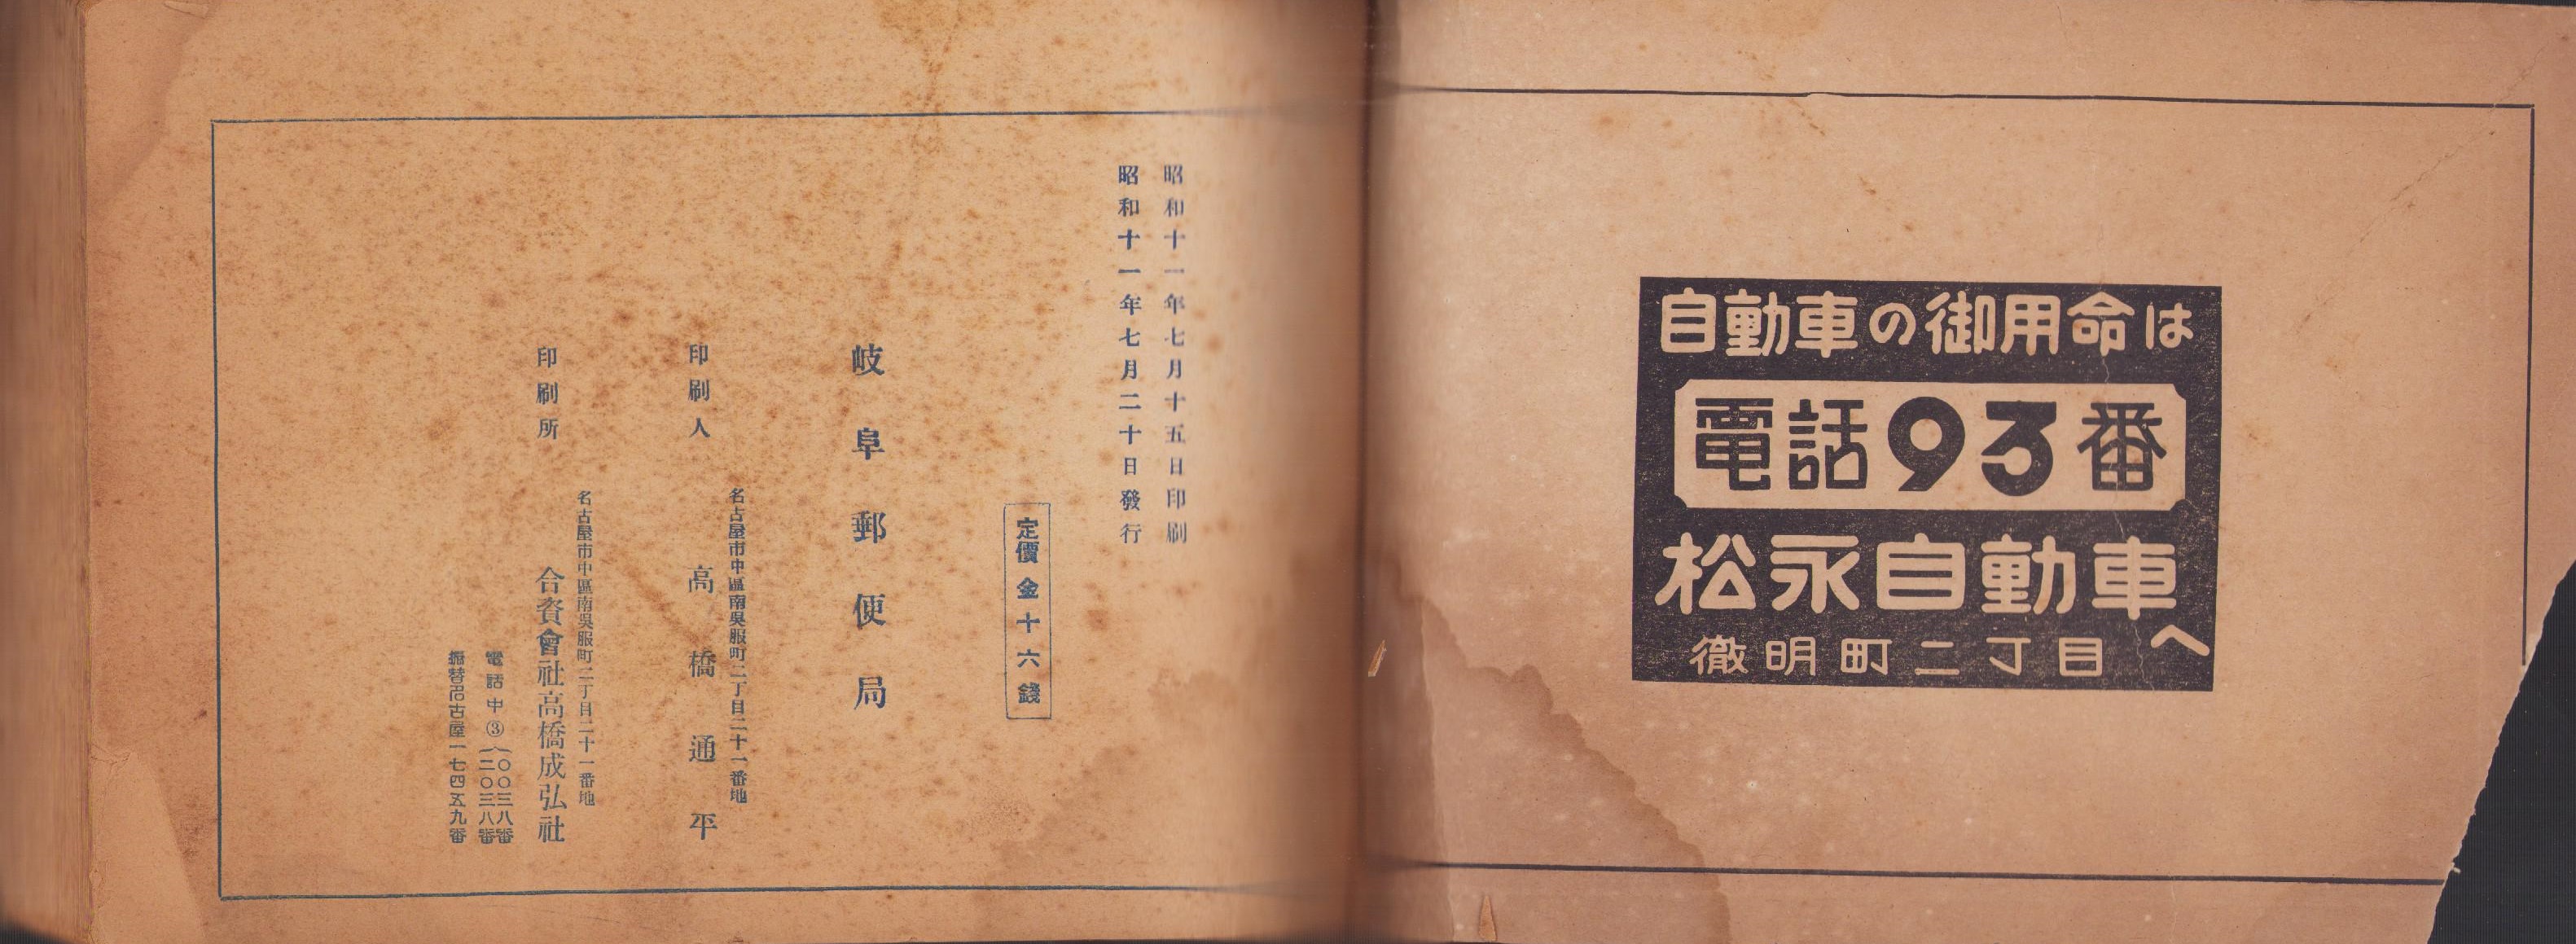 自動車の御用命は
電話93番
松永自動車へ
徹明町二丁目
昭和十一年七月十五日印刷
昭和十一年七月二十日發行
定價金十六錢
岐阜郵便局
名古屋市中區南吳服町二丁目二十一番地
印刷人 高橋通平
名古屋市中區南吳服町二丁目二十一番地
印刷所 合資會社高橋成弘社
電話中③(〇〇三八番
二〇三八番
振替名古屋一七四五九番